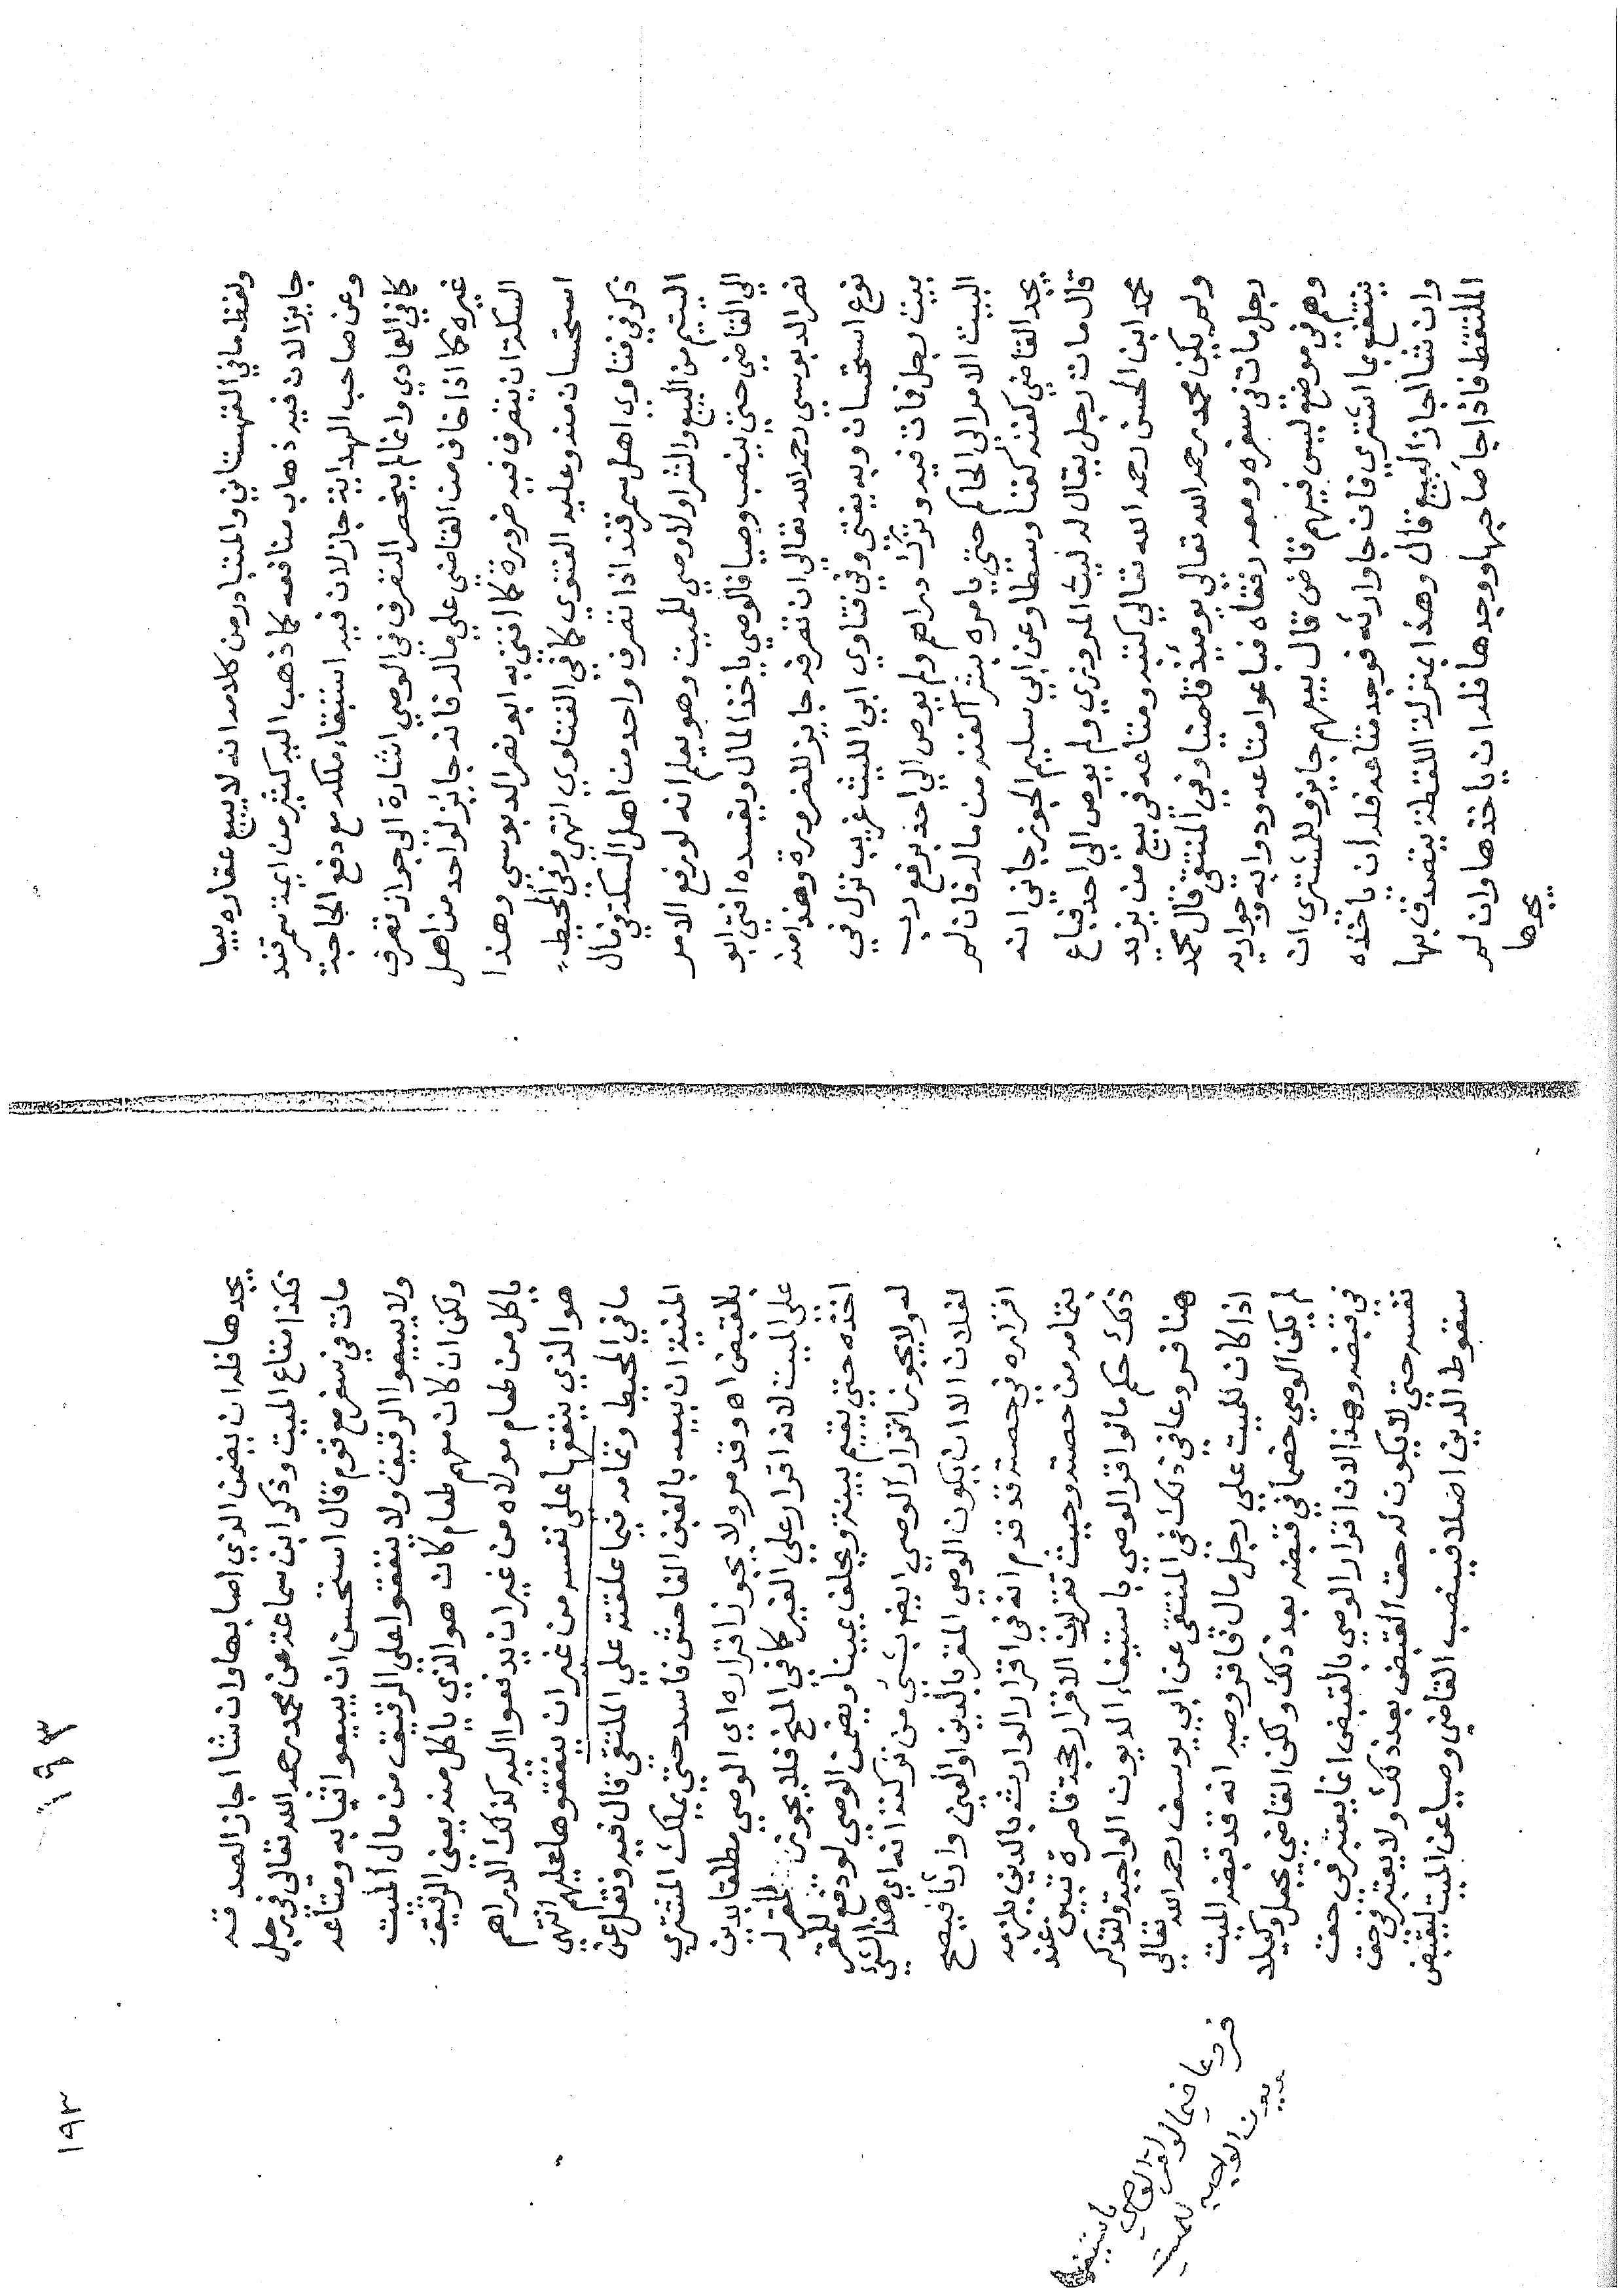 ولفظ ما في القهستاني والمتبادر من كلامه انه لا يبيع عقاره بيعا
جايزا لان فيه ذهاب منافعه كما ذهب اليه كثير من ايمة سمرقند
وعن صاحب الهداية جاز لان فيه استبقاء ملكه مع دفع الحاجة
كما في العمادي وانما لم ينحصر التصرف في الوصي اشارة الي جواز تصرف
غيره كما اذا خاف من القاضي علي ماله فانه جايز لواحد من اهل
السكة ان يتصرف فيه ضرورة كما افتي به ابو نصر الدبوسي وهذا
استحسان منه وعليه الفتوي كما في الفتاوي انتهي وفي المحيط
ذكر في فتاوي اهل سمرقند اذا تصرف واحد من اهل السكة في مال
اليتيم من البيع والشرا ولا وصي للميت وهو يعلم انه لو رفع الامر
الي القاضي حتي ينصب وصيا فالوصي ياخذ المال ويفسده افتي ابو
نصر الدبوسي رحمه الله تعالي ان تصرفه جايز للضرورة وهذا منه
نوع استحسان وبه يفتي وفي فتاوي ابي الليث غريب نزل في
بيت رجل فمات فيه وترك دراهم ولم يوص الي احد يرفع رب
البيت الامر الي الحاكم حتي يامره بشر اكفنه من ماله فان لم
يجد القاضي كفنه كفنا وسطا وعن ابي سليم الجوزجاني انه
قال مات رجل يقال له ليث المروزي ولم يوص الي احد فباع
محمد ابن الحسن رحمه الله تعالي كتبه ومتاعه في بيع من يزيد
ولم يكن محمد رحمه الله تعالي يوميذ قاضيا وفي المنتقي قال محمد
رجل مات في سفره ومعه رفقاه فباعوا متاعه ودوابه وجواريه
وهم في موضع ليس فيهم قاض قال بيعهم جايز وللمشتري ان
ينتفع بما اشتري فان جا وارثه فوجد متاعه فله ان ياخذه
وان شا اجاز البيع قال وهذا بمنزلة اللقطة يتصدق بها
الملتقط فاذا جا صاحبها ووجدها فله ان ياخذها وان لم
يجدها
١٩٣
١٩٣
يجدها فله ان يضمن الذي اصابها وان شا اجاز الصدقة
فكذا متاع الميت وذكر ابن سماعة عن محمد رحمه الله تعالي في رجل
مات في سفر مع قوم قال استحسن ان يبيعوا ثيابه ومتاعه
ولا يبيعوا الرقيق ولا ينفقوا علي الرقيق من مال الميت
ولكن ان كان معهم طعام كان هو الذي ياكل منه يعني الرقيق
ياكل من طعام مولاه من غير ان يدفعوا اليه كذلك الدراهم
هو الذي ينفقها علي نفسه من غير ان ينفقوها عليهم انتهي
ما في المحيط وتمامه فيما علقته علي الملتقي قال فيه ونقل عن
المنية ان بيعه بالغبن الفاحش فاسد حتي يملكه المشتري
بالقبض اه وقد مر ولا يجوز اقراره اي الوصي مطلقا بدين
علي الميت لانه اقرار علي الغير كما في المنح فلا يجوز للمقر له
اخذه حتي يقيم بينة ويحلف يمينا ويضمن الوصي لو دفع للمقر
له ولا يجوز اقرار الوصي ايضا بشي من تركته انه اي هذا الشي
لفلان الا ان يكون الوصي المقر بالدين او العين وارثا فيصح
اقراره في حصته قد قدم انه في اقرار الوارث بالدين يلزمه
بتمامه من حصته وحيث تقرر ان الاقرار حجة قاصرة تبين عند
ذلك حكم ما لو اقر الوصي باستيفاء الديون الواجبة ولنذكر
هنا فروعا في ذلك في المنتقي عن ابي يوسف رحمه الله تعالي
اذا كان للميت علي رجل مال فاقر وصيه انه قد قبضه الميت
لم يكن الوصي خصما في قبضه بعد ذلك ولكن القاضي يجعل وكيلا
في قبضه وهذا لان اقرار الوصي بالقبض انما يعتبر في حق
نفسه حتي لا يكون له حق القبض بعد ذلك ولا يعتبر في حق
سقوط الدين اصلا فينصب القاضي وصيا عن الميت ليقبض
فروعا فيما لو اقر الوصي باستيفا
ديون الواجبه للميت